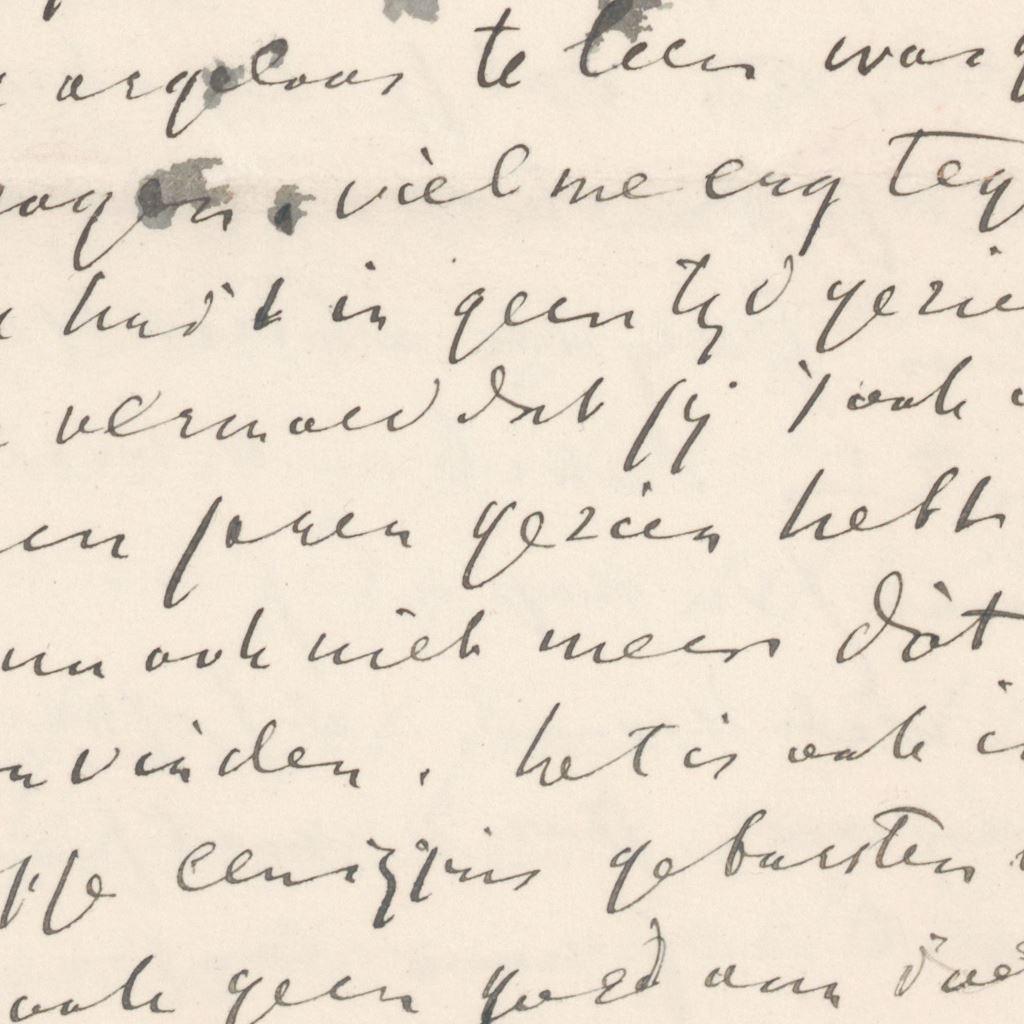 argeloos te leen was g
ogen, viel me erg teg
had 't in geen tijd gezie
vermoed dat jij 't ook
en jaren gezien hebt
nu ook niet meer dat
vinden. het is ook i
pje eenigzins gebarsten
ook geen goed aan doe